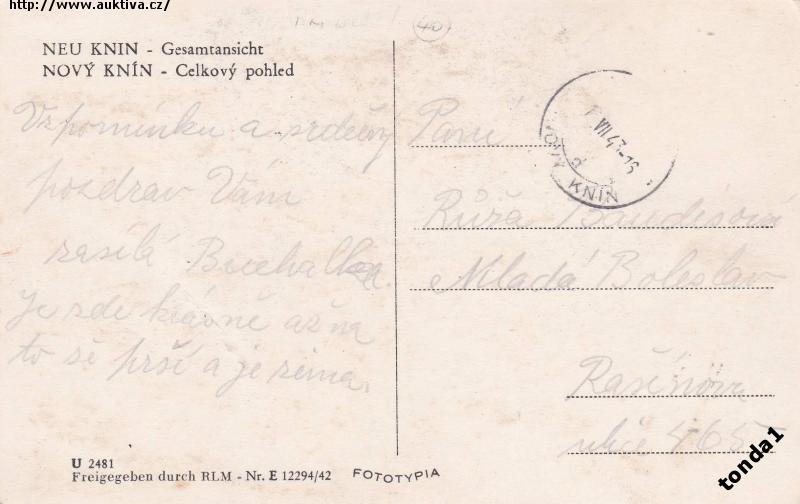 http://www.auktiva.cz/
40
NEU KNIN - Gesamtansicht
NOVÝ KNÍN - Celkový pohled
Vzpomínku a srdečný
pozdrav Vám
zasílá
Je zde krásně až na
to že prší a je zima.
Paní
Růža
Mladá Boleslav
Rašínova
ulice
VII 43-16
NOVÝ KNÍN
U 2481
Freigegeben durch RLM - Nr. E 12294/42
FOTOTYPIA
tonda1